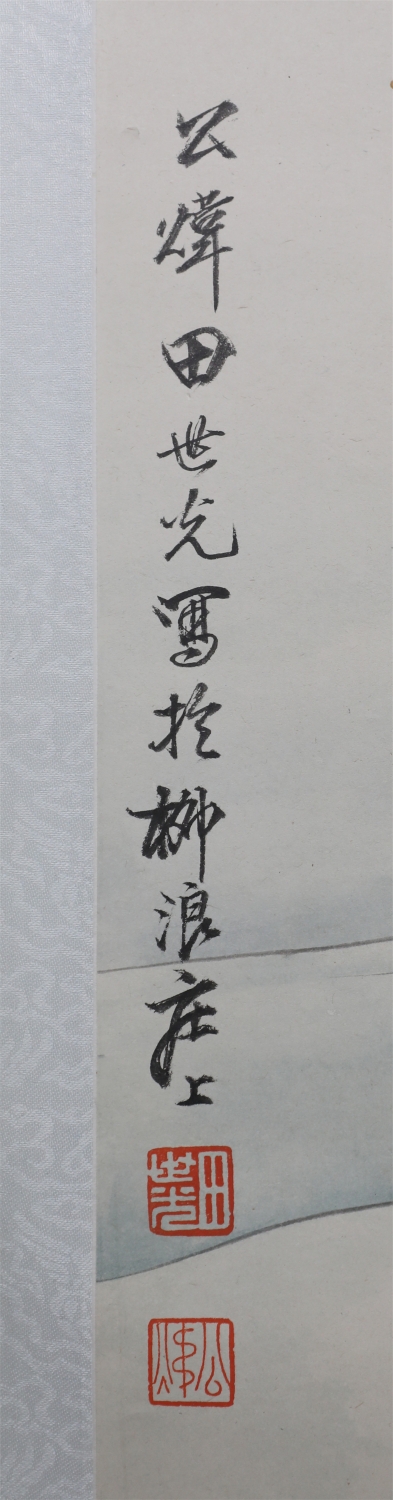 公煒田世光寫於柳浪庄上
田世光
公煒